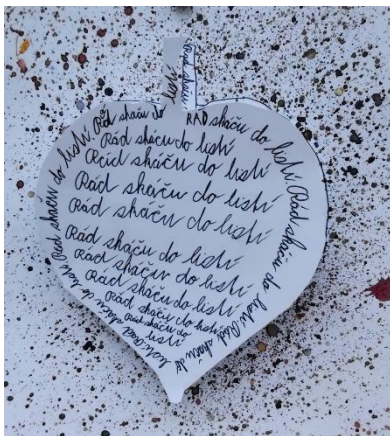 Rád skáču
do listí
Rád skáču do listí
RÁD skáču do listí
Rád skáču do listí
Rád skáču do listí
Rád skáču do listí
Rád skáču do listí
Rád skáču do listí
Rád skáču do listí
Rád skáču do listí
Rád skáču do listí
Rád skáču do listí
Rád skáču do listí
Rád skáču do
listí
Rád skáču do listí
Rád skáču do listí
Rád skáču do
listí